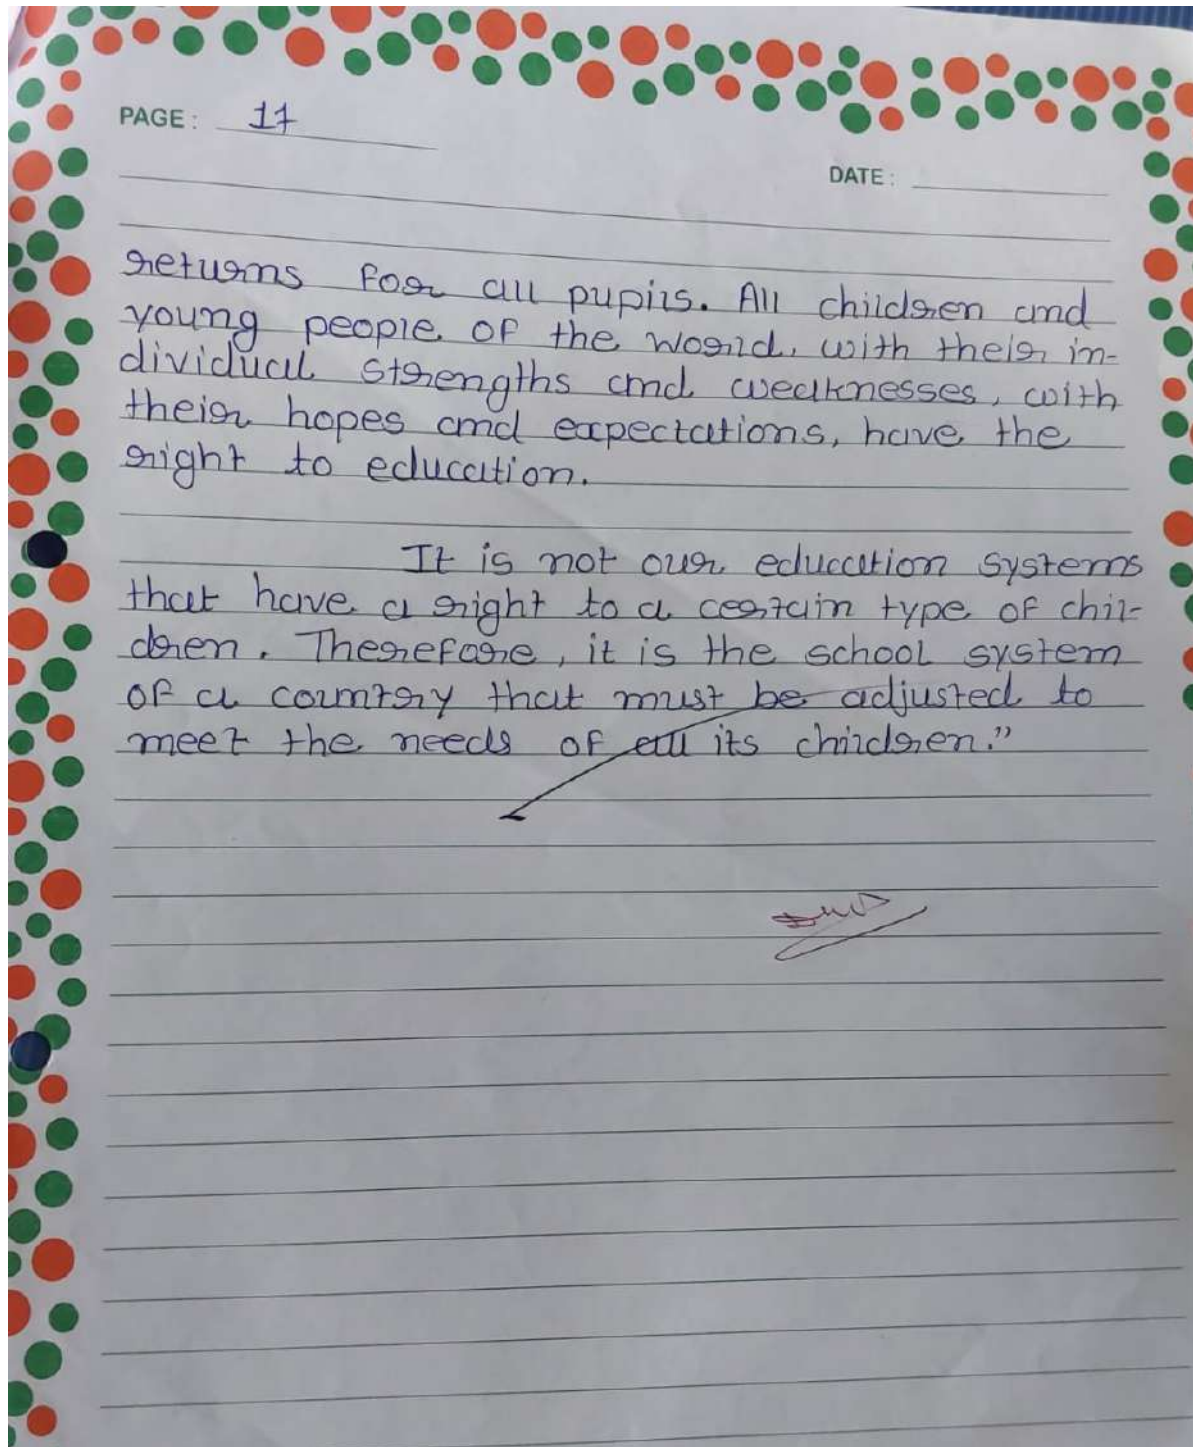 PAGE: 17
DATE:
returns for all pupils. All children and
young people of the world, with their in-
dividual strengths and weaknesses, with
their hopes and expectations, have the
right to education.
It is not our education systems
that have a right to a certain type of chil-
dren. Therefore, it is the school system
of a country that must be adjusted to
meet the needs of all its children.”